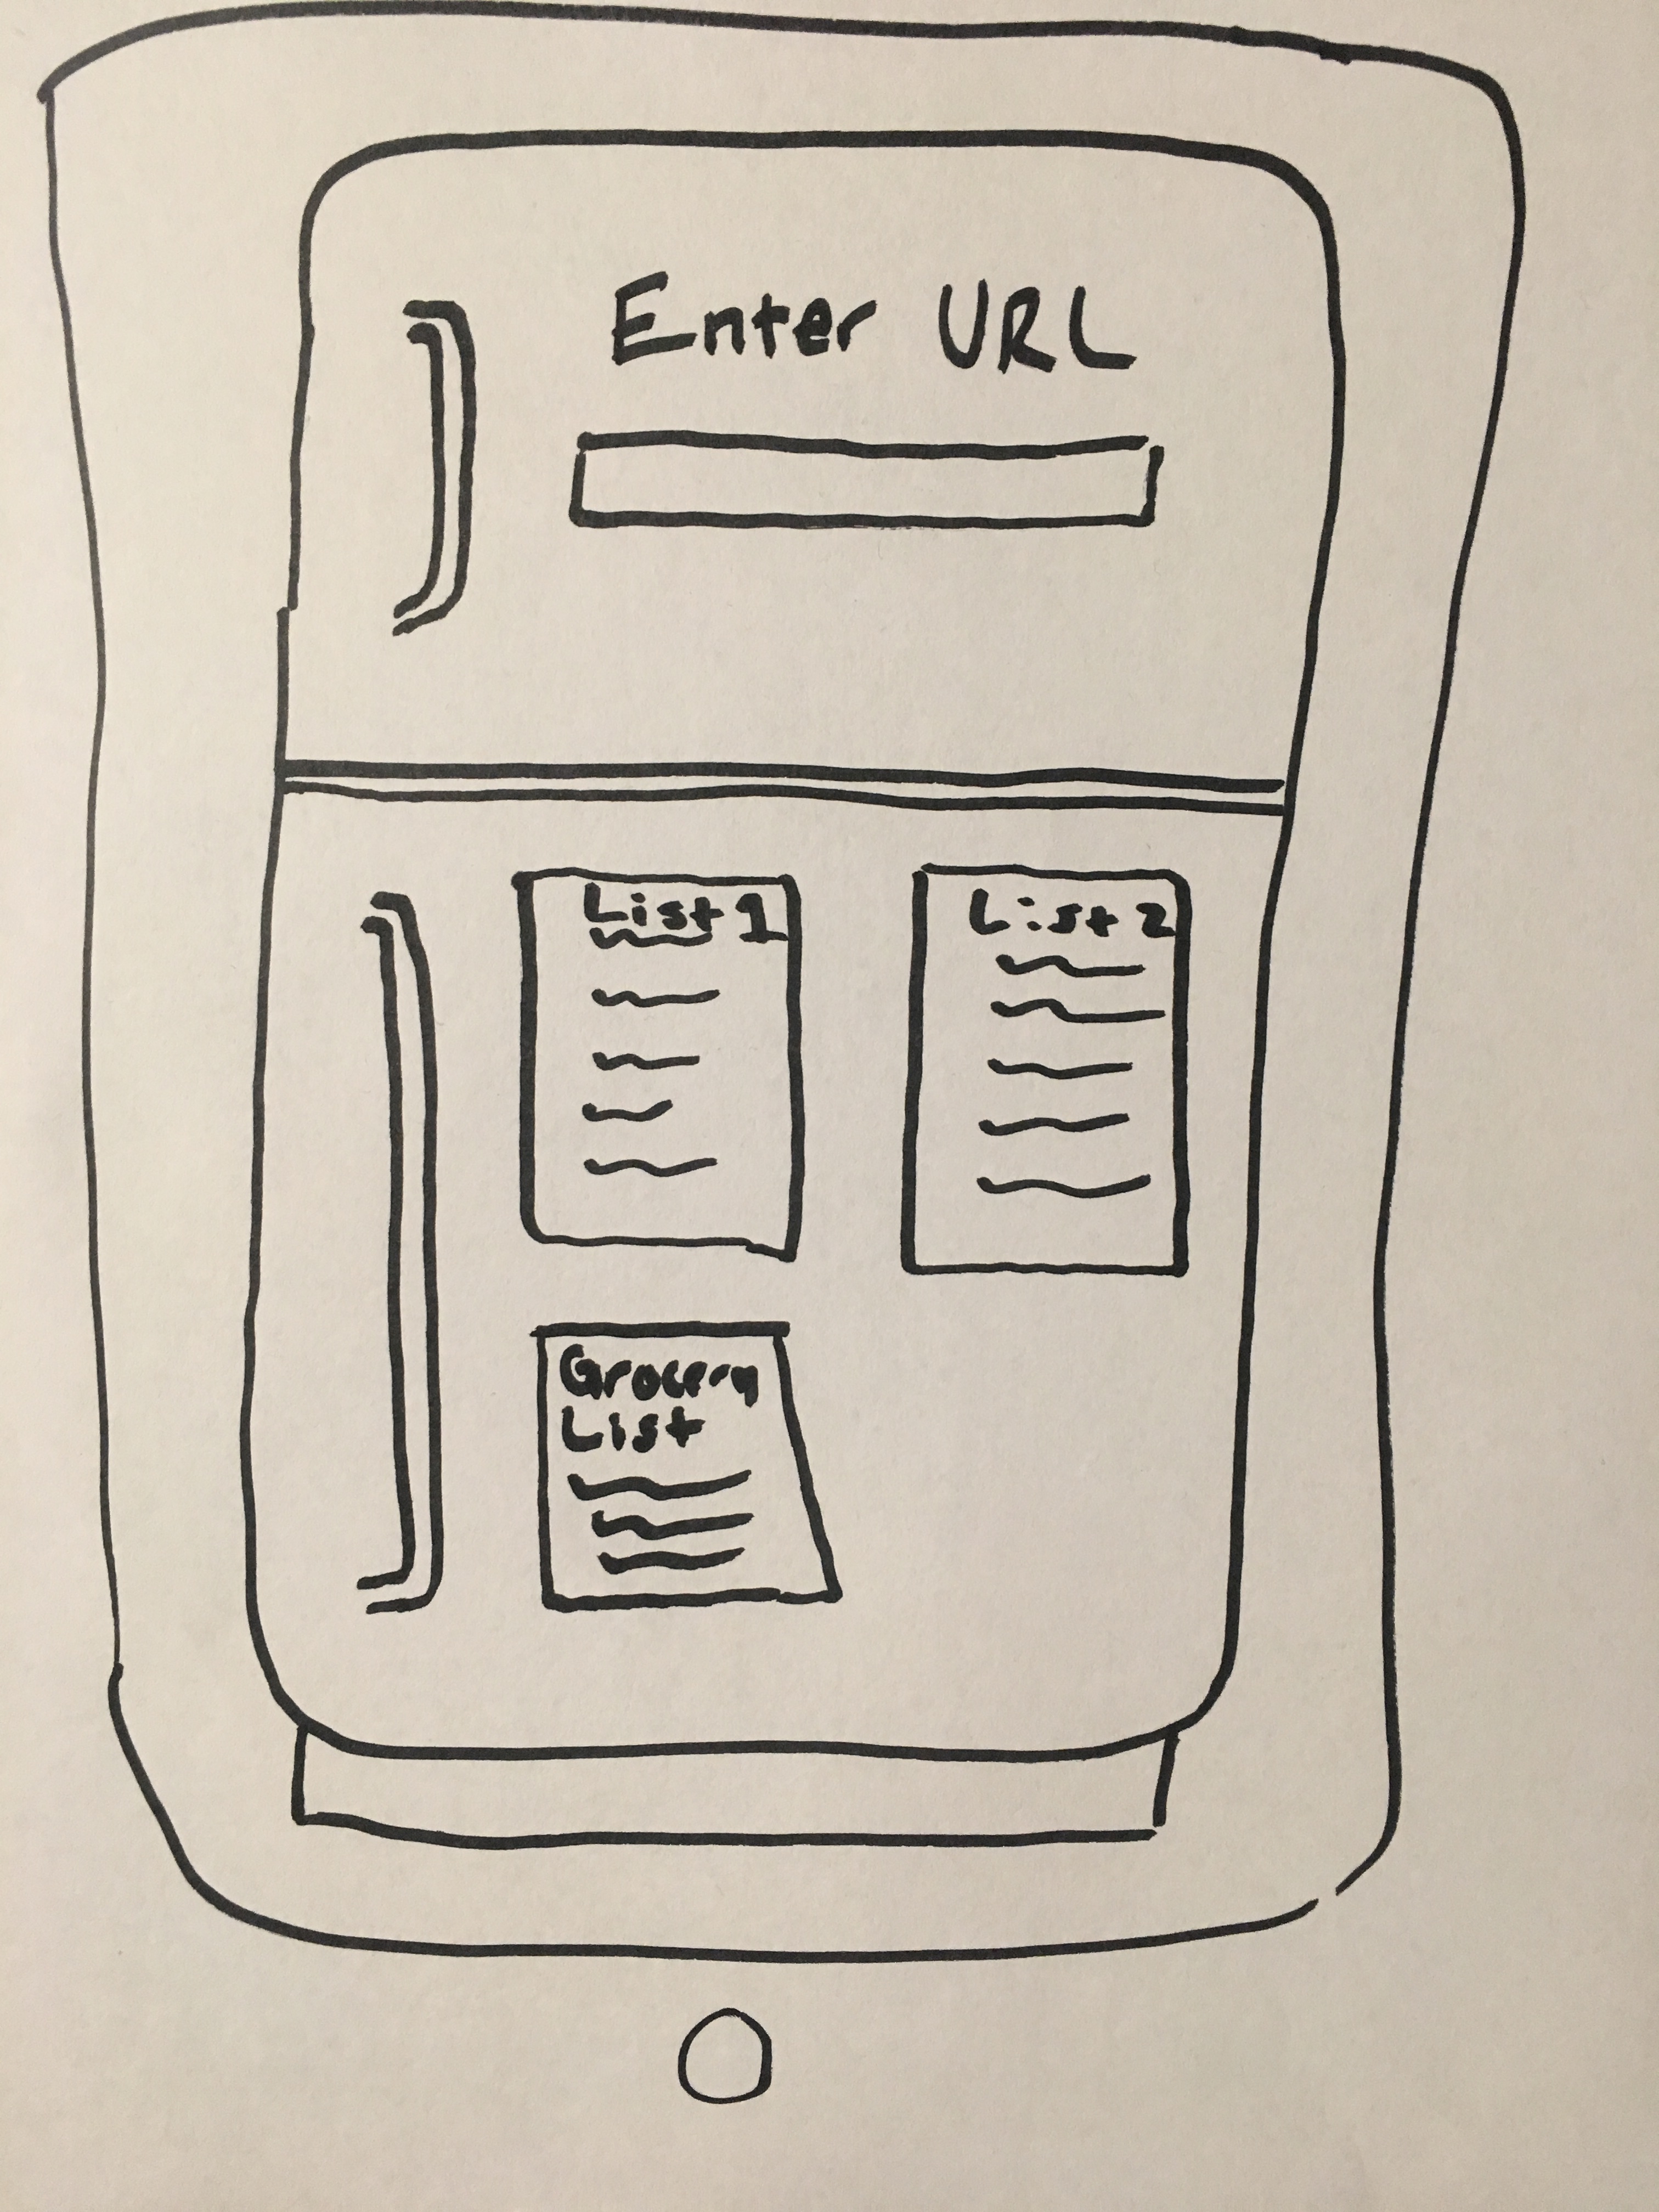 Enter URL
List 1
List 2
Grocery
List